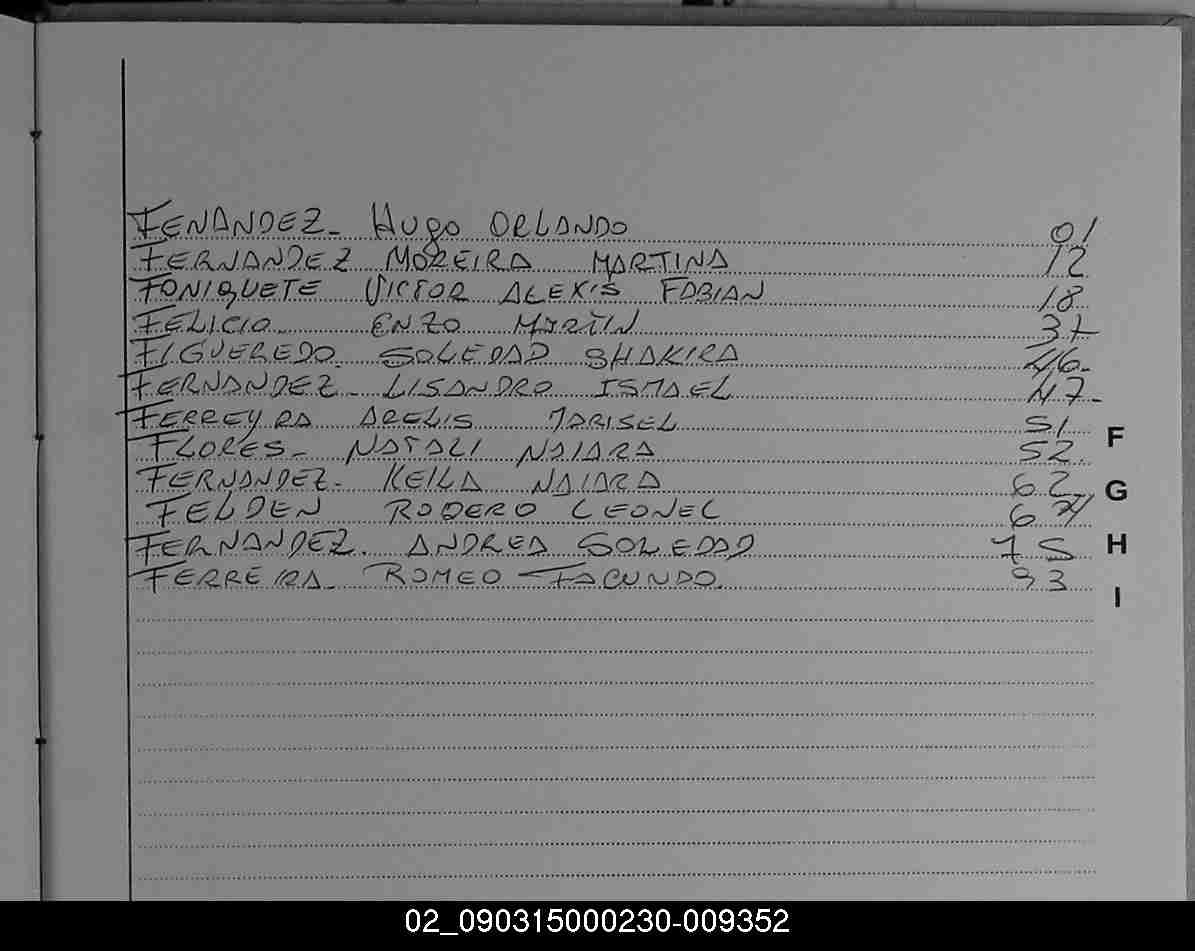 FENANDEZ- HUgO ORLANDO 01
FERNANDEZ MOREIRA MARTINA 12
FONIQUETE VICTOR ALEXIS FABIAN 18
FELICIO ENZO MARTIN 37
FIGUEREDO SOLEDAD SHAKIRA 46-
FERNANDEZ- LISANDRO ISMAEL 47-
FERREYRA ARELIS MARISEL 51
FLORES- NATALI NAIARA 52
FERNANDEZ- KEILA NAIARA 62
FELDEN RODERO LEONEL 67
FERNANDEZ. ANDREA SOLEDAD 75
FERREIRA- ROMEO FACUNDO 93
F
G
H
I
02_090315000230-009352